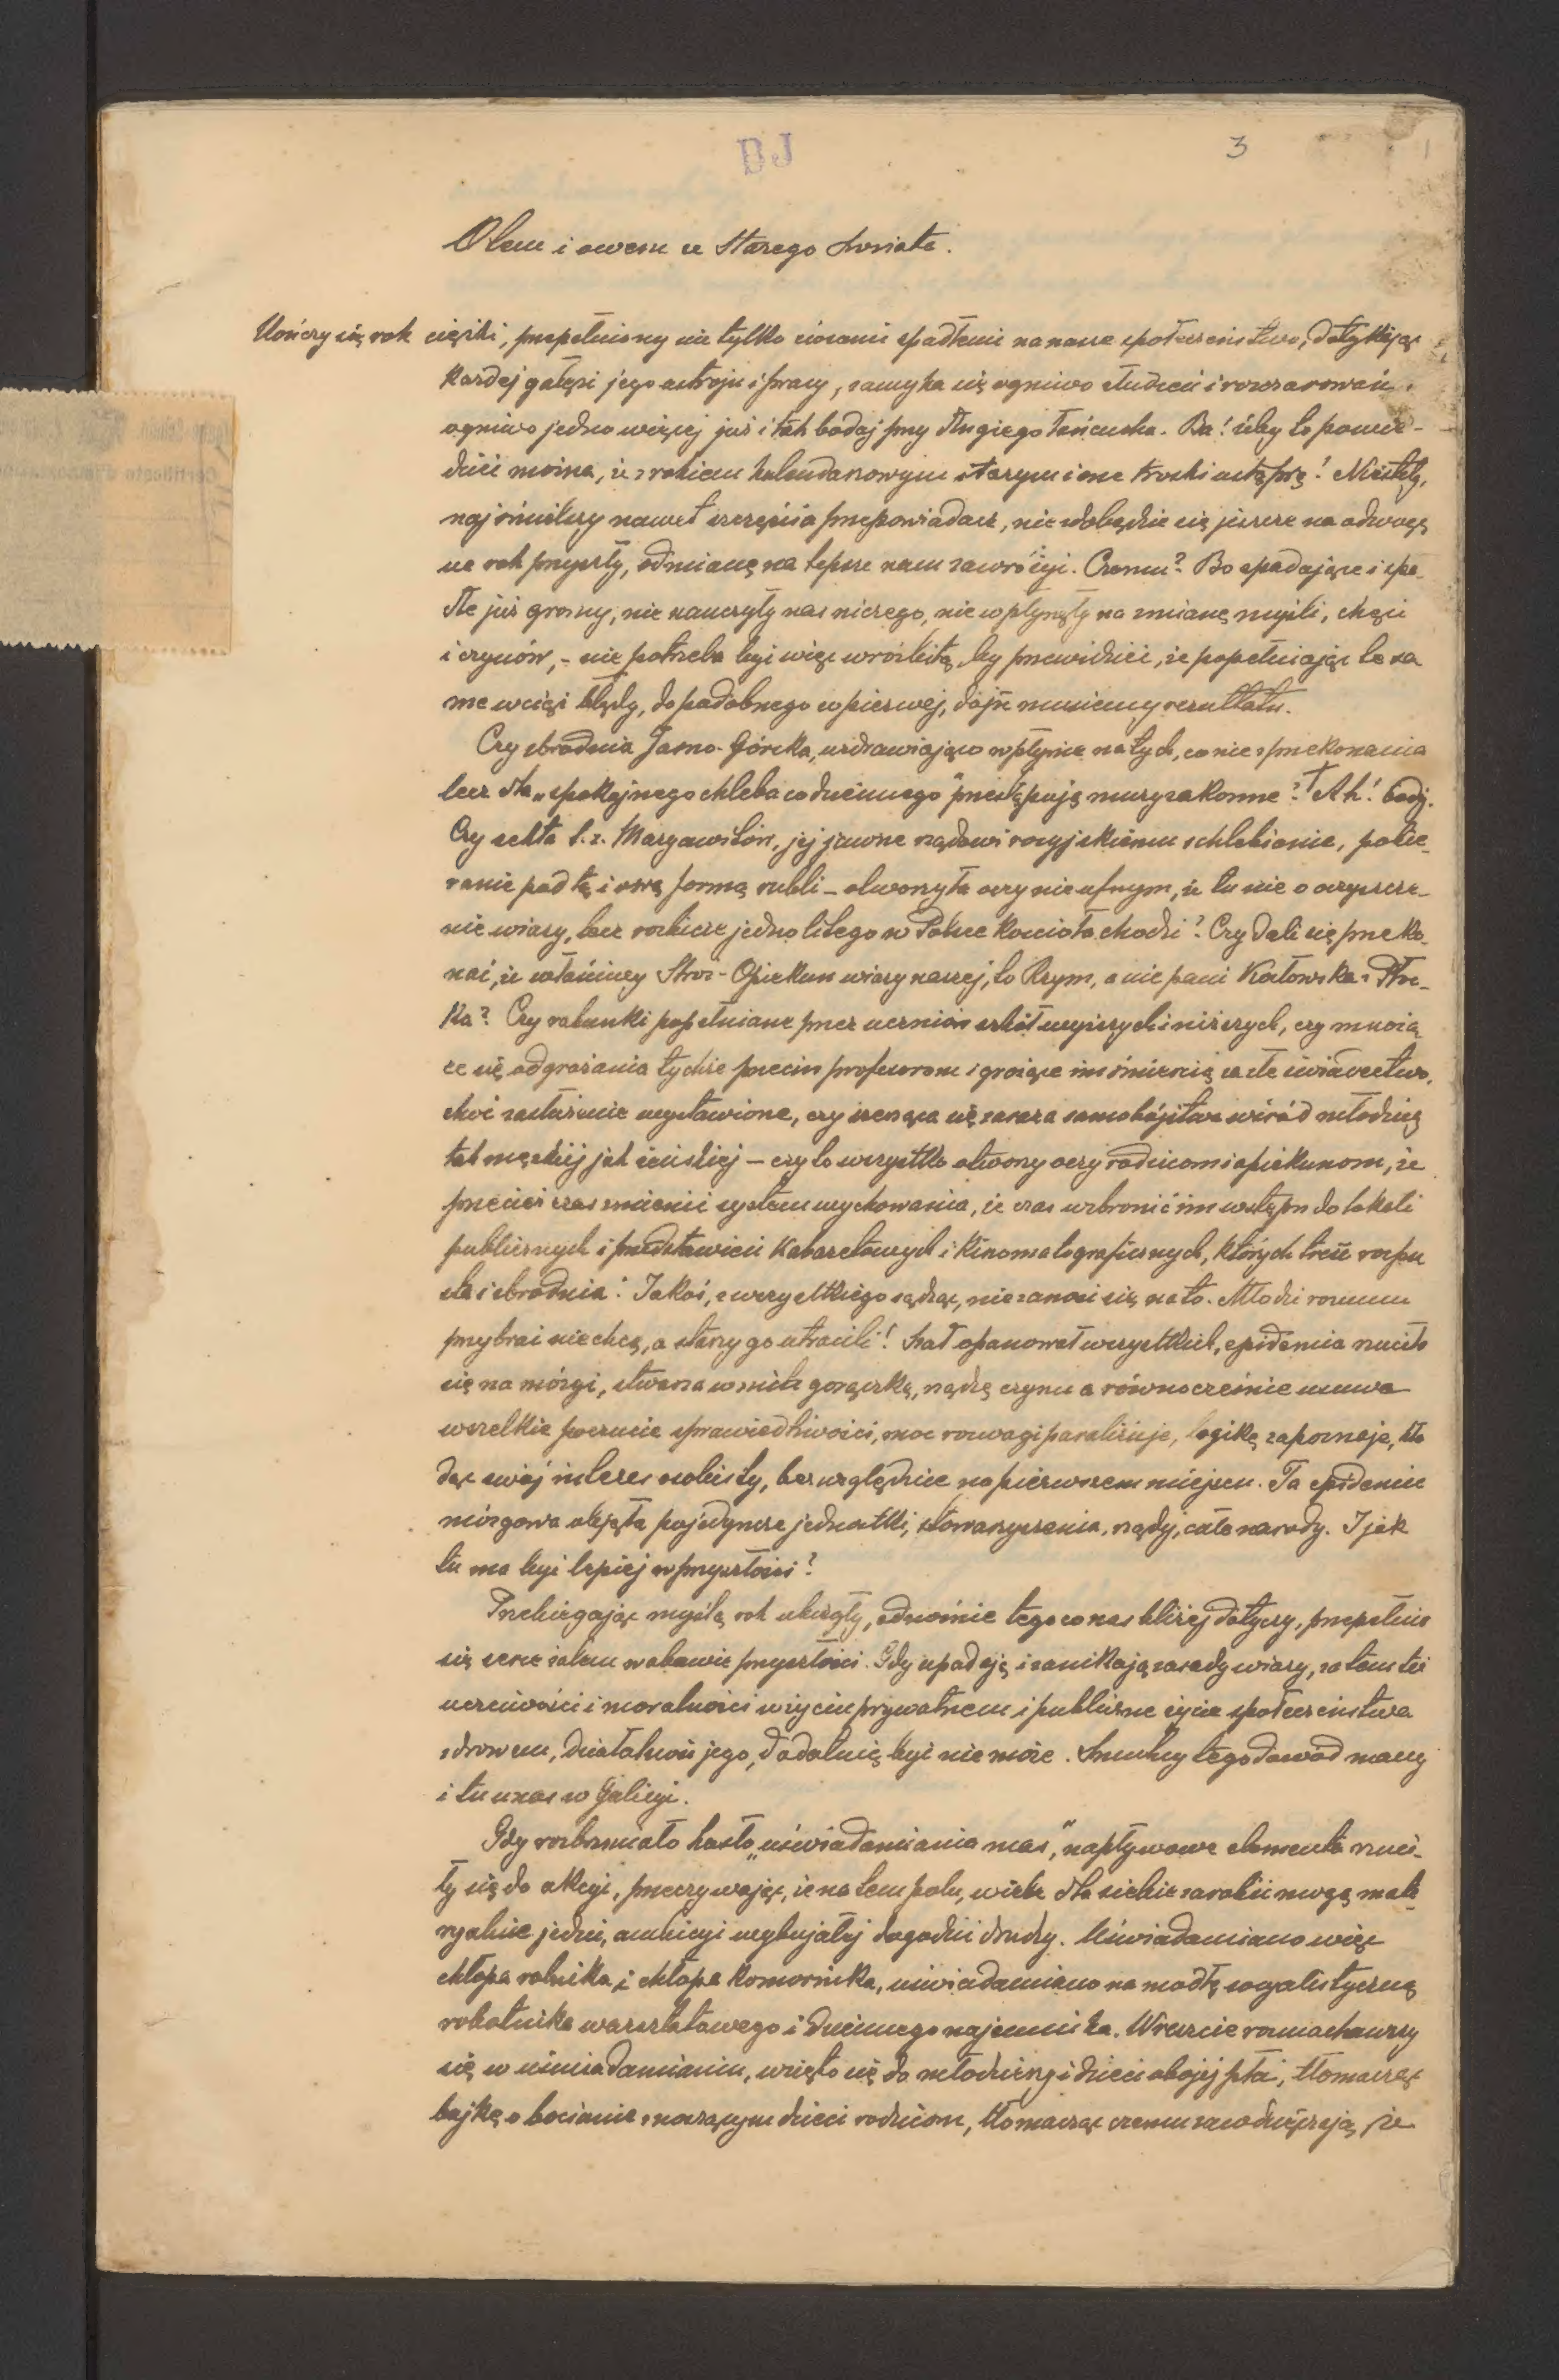 BJ
3
O tem i owem ze Starego Świata.
Kończy się rok ciężki, przepełniony nie tylko ciosami spadłemi na nasze społeczeństwo, dotykając
każdej gałęzi jego ustroju i pracy, zamyka się ogniwo złudzeń i rozczarowań,
ogniwo jedno więcej już i tak bodaj przy długiego łańcucha. Ba! żeby to powie-
dzieć można, że z rokiem kalendarzowym starym i one troski ustąpią! Niestety,
najśmielszy nawet szczęścia przepowiadacz, nie zdobędzie się jeszcze na odwagę
na rok przyszły, odmianę na lepsze nam zawróżyć. Czemu? Bo spadające i spa-
dłe już gromy, nie nauczyły nas niczego, nie wpłynęły na zmianę myśli, chęci
i czynów, - nie potrzeba być więc wróżbitą, by przewidzieć, że popełniając te sa
me wciąż błędy, do podobnego co pierwej, dojść musiemy rezultatu.
Czy zbrodnia Jasno-Górska, uzdrawiająco wpłynie na tych, co nie z przekonania
lecz dla „spokojnego chleba codziennego" przestępują mury zakonne? Ah! bodaj.
Czy sekta t.z. Maryawitów, jej jawne rządowi rosyjskiemu schlebianie, pobie-
ranie pod tą i ową formą rubli - otworzyła oczy nieufnym, że tu nie o oczyszcze-
nie wiary, lecz rozbicie jednolitego w Polsce kościoła chodzi? Czy dali się przeko-
nać, że właściwy Stróż-Opiekun wiary naszej, to Rzym, a nie pani Kozłowska z Płoc-
ka? Czy rabunki popełniane przez uczniów szkół wyższych i niższych, czy mnożą-
ce się odgrażania tychże przeciw profesorom i grożące im śmiercią za złe świadectwo,
choć zasłużenie wystawione, czy szerząca się zaraza samobójstw wśród młodzieży
tak męskiej jak żeńskiej - czy to wszystko otworzy oczy rodzicom i opiekunom, że
przecież czas zmienić system wychowania, że czas wzbronić im wstępu do lokali
publicznych i przedstawień kabaretowych i kinomatograficznych, których treść rozpu
sta i zbrodnia? Jakoś, z wszystkiego sądząc, nie zanosi się na to. Młodzi rozumu
przybrać nie chcą, a starzy go utracili! Szał opanował wszystkich, epidemia rzuciła
się na mózgi, stwarza w nich gorączkę, żądzę czynu a równocześnie usuwa
wszelkie poczucie sprawiedliwości, moc rozwagi paraliżuje, logikę zapoznaje, kła
dąc swój interes osobisty, bezwzględnie na pierwszem miejscu. Ta epidemia
mózgowa objęła pojedyncze jednostki, stowarzyszenia, rządy, całe narody. I jak
tu ma być lepiej w przyszłości?
Przebiegając myślą rok ubiegły, odnośnie tego co nas bliżej dotyczy, przepełnia
się serce żalem w obawie przyszłości. Gdy upadają i zanikają zasady wiary, zatem też
uczciwości i moralności w życiu prywatnem i publiczne życie społeczeństwa
zdrowem, działalność jego, dodatnią być nie może. Smutny tego dowód mamy
i tu u nas w Galicyi.
Gdy rozbrzmiało hasło „uświadamiania mas," napływowe elementa rzuci-
ły się do akcyi, przeczuwając, że na tem polu, wiele dla siebie zarobić mogą mate
ryalnie jedni, ambicyi wybujałej dogodzić drudzy. Uświadamiano więc
chłopa rolnika i chłopa komornika, uświadamiano na modłę socyalistyczną
robotnika warsztatowego i dziennego najemnika. Wreszcie rozmachawszy
się w uświadamianiu, wzięto się do młodzieży i dzieci obojej płci, tłomacząc
bajkę o bocianie znoszącym dzieci rodzicom, tłomacząc czemu zawdzięczają, że